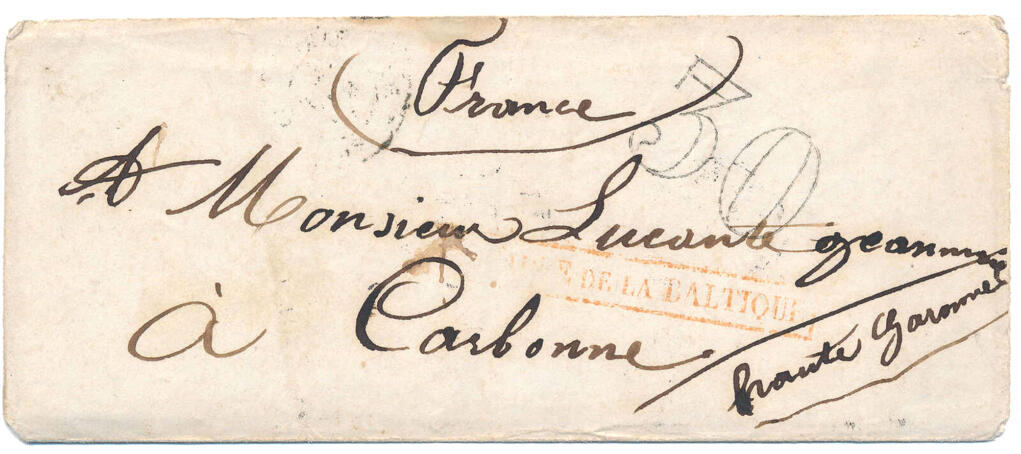 France
30
A Monsieur Lucante
DE LA BALTIQUE
à Carbonne
haute Garonne